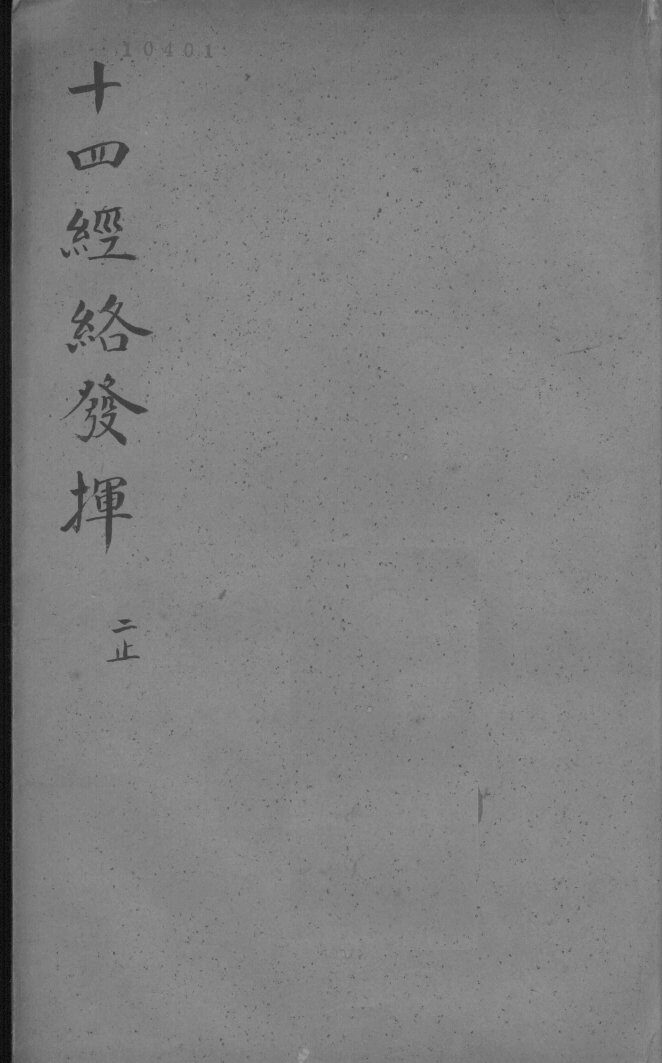 10401
十四經絡發揮
二止